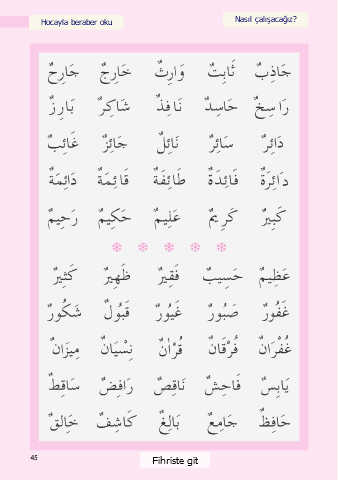 Hocayla beraber oku
Nasıl çalışacağız?
جَاذِبٌ ثَابِتٌ وَارِثٌ خَارِجٌ جَارِحٌ
رَاسِخٌ حَاسِدٌ نَافِذٌ شَاكِرٌ بَارِزٌ
دَائِرٌ سَائِرٌ نَائِلٌ جَائِزٌ غَائِبٌ
دَائِرَةٌ فَائِدَةٌ طَائِفَةٌ قَائِمَةٌ دَائِمَةٌ
كَبِيرٌ كَرِيمٌ عَلِيمٌ حَكِيمٌ رَحِيمٌ
عَظِيمٌ حَسِيبٌ فَقِيرٌ ظَهِيرٌ كَثِيرٌ
غَفُورٌ صَبُورٌ غَيُورٌ قَبُولٌ شَكُورٌ
غُفْرَانٌ فُرْقَانٌ قُرْاٰنٌ نِسْيَانٌ مِيزَانٌ
يَابِسٌ فَاحِشٌ نَاقِصٌ رَافِضٌ سَاقِطٌ
حَافِظٌ جَامِعٌ بَالِغٌ كَاشِفٌ خَالِقٌ
45
Fihriste git